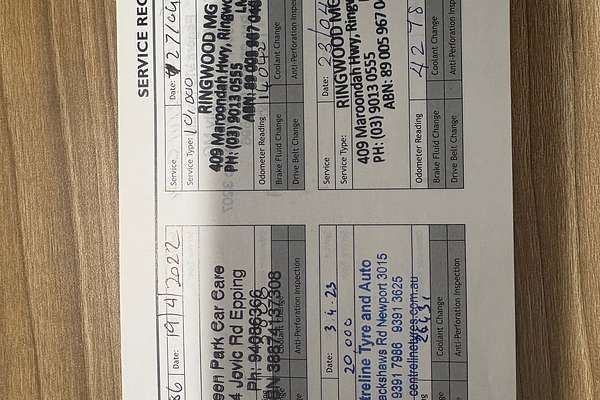 SERVICE REC
Date: 19/4/2022
een Park Car Care
4 Jovic Rd Epping
Ph: 94086366
BN 38874137308
Coolant Change
Anti-Perforation Inspection
Service Date: 27/04
Service Type: 10,000
RINGWOOD MG
409 Maroondah Hwy, Ringwo
PH: (03) 9013 0555
ABN: 89 005 967 048
Odometer Reading
Brake Fluid Change Coolant Change
Drive Belt Change Anti-Perforation Inspection
Date: 3.4.23
20,000
treline Tyre and Auto
ackshaws Rd Newport 3015
9391 7986 9391 3625
centrelinetyres.com.au
Coolant Change
Anti-Perforation Inspection
Service Date: 23/04
Service Type:
RINGWOOD MG
409 Maroondah Hwy, Ringw
PH: (03) 9013 0555
ABN: 89 005 967 04
Odometer Reading 4278
Brake Fluid Change Coolant Change
Drive Belt Change Anti-Perforation Inspection